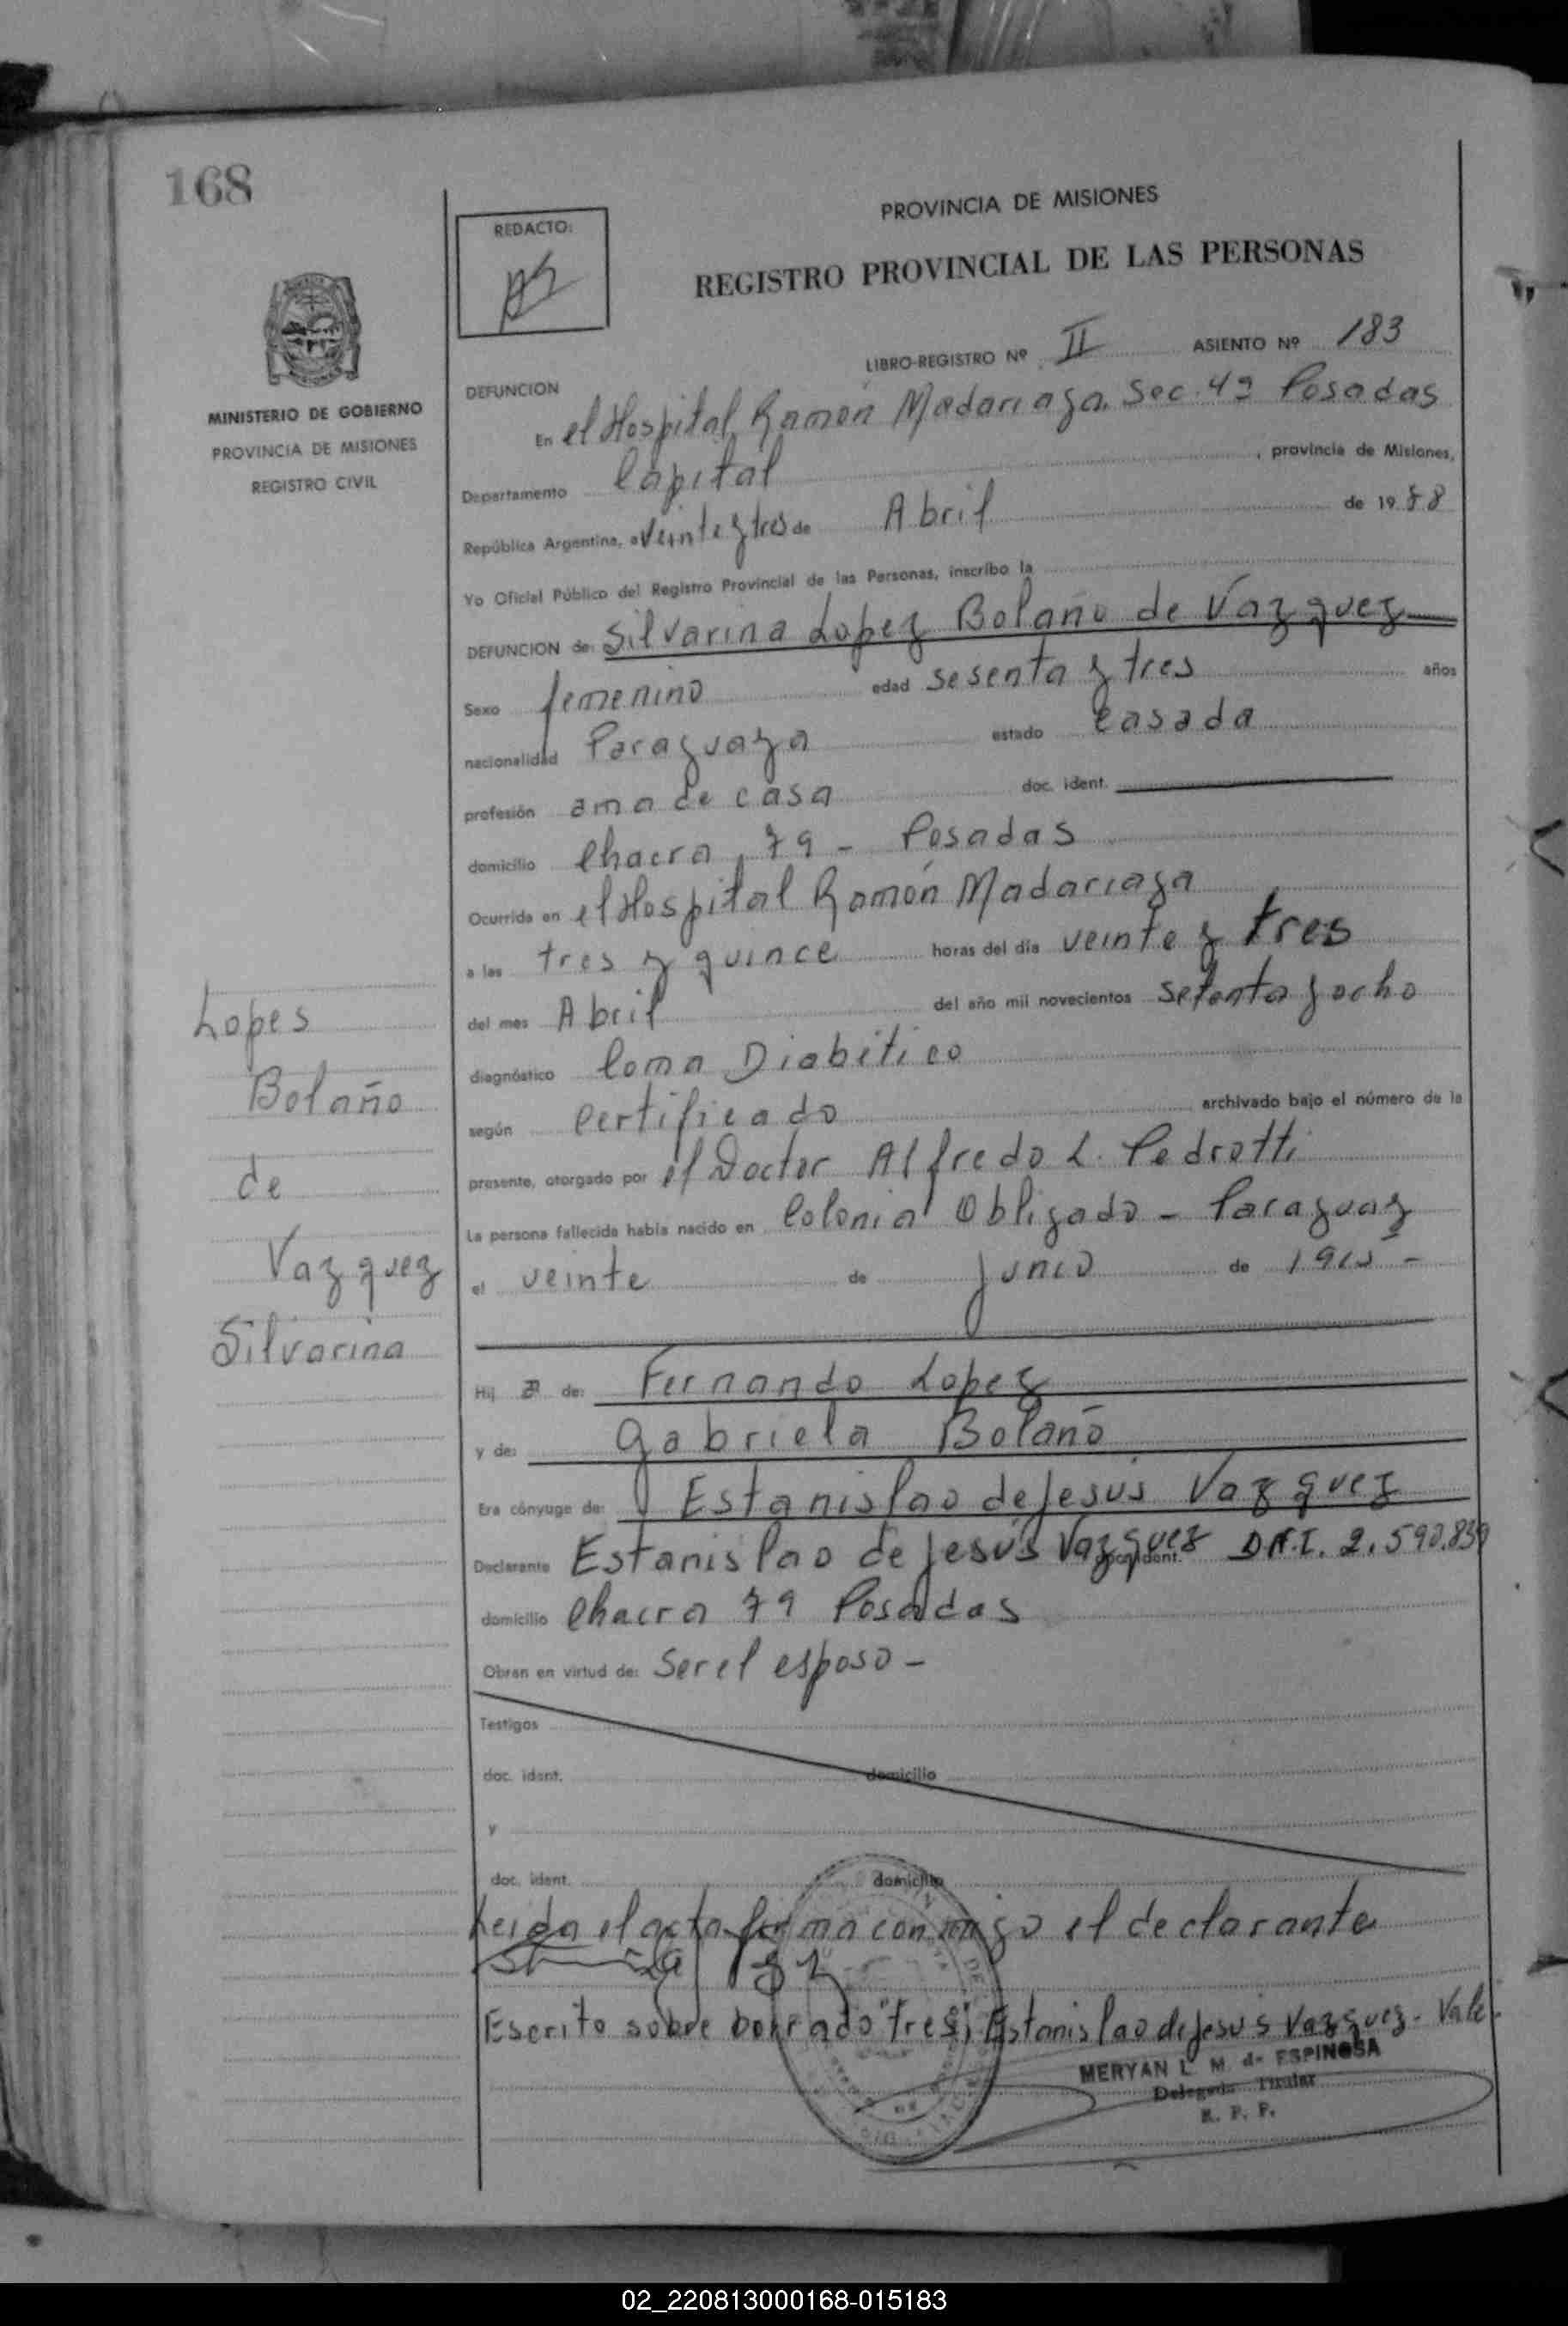 168
PROVINCIA DE MISIONES
REDACTO:
REGISTRO PROVINCIAL DE LAS PERSONAS
LIBRO-REGISTRO Nº II ASIENTO Nº 183
MINISTERIO DE GOBIERNO
PROVINCIA DE MISIONES
REGISTRO CIVIL
DEFUNCION
En el Hospital Ramón Madariaga. Sec. 4ª Posadas
Departamento Capital, provincia de Misiones,
República Argentina, a veinte y tres de Abril de 1978
Yo Oficial Público del Registro Provincial de las Personas, inscribo la
DEFUNCION de: Silvarina Lopez Bolaño de Vazquez
Sexo femenino edad sesenta y tres años
nacionalidad Paraguaya estado casada
profesión ama de casa doc. ident.
domicilio Chacra 79 - Posadas
Ocurrida en el Hospital Ramón Madariaga
a las tres y quince horas del día veinte y tres
del mes Abril del año mil novecientos setenta y ocho
diagnóstico Coma Diabético
según certificado archivado bajo el número de la
presente, otorgado por el Doctor Alfredo L. Pedrotti
La persona fallecida había nacido en Colonia Obligado - Paraguay
el veinte de junio de 1915 -
Lopes
Bolaño
de
Vazquez
Silvarina
Hij a de: Fernando Lopez
y de: Gabriela Bolaño
Era cónyuge de: Estanislao de Jesús Vazquez
Declarante Estanislao de Jesús Vazquez doc. ident. D.N.I. 2.590.839
domicilio Chacra 79 Posadas
Obran en virtud de: Ser el esposo -
Testigos
doc. ident. domicilio
y
doc. ident. domicilio
Leida el acta firma conmigo el declarante
Escrito sobre borrado "tres", Estanislao de Jesus Vazquez - Vale -
MERYAN L. M. de ESPINOSA
Delegada Titular
R. P. P.
02_220813000168-015183